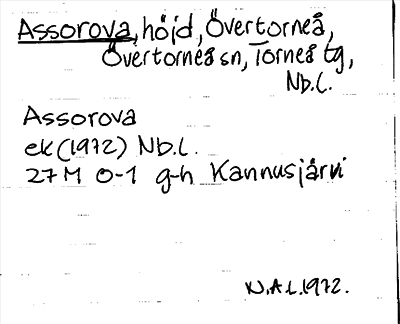 Assorova, höjd, Övertorneå,
Övertorneå sn, Torneå tg,
Nb.l.
Assorova
ek (1972) Nb.l.
27 M 0-1 g-h Kannusjärvi
N.A.L. 1972.